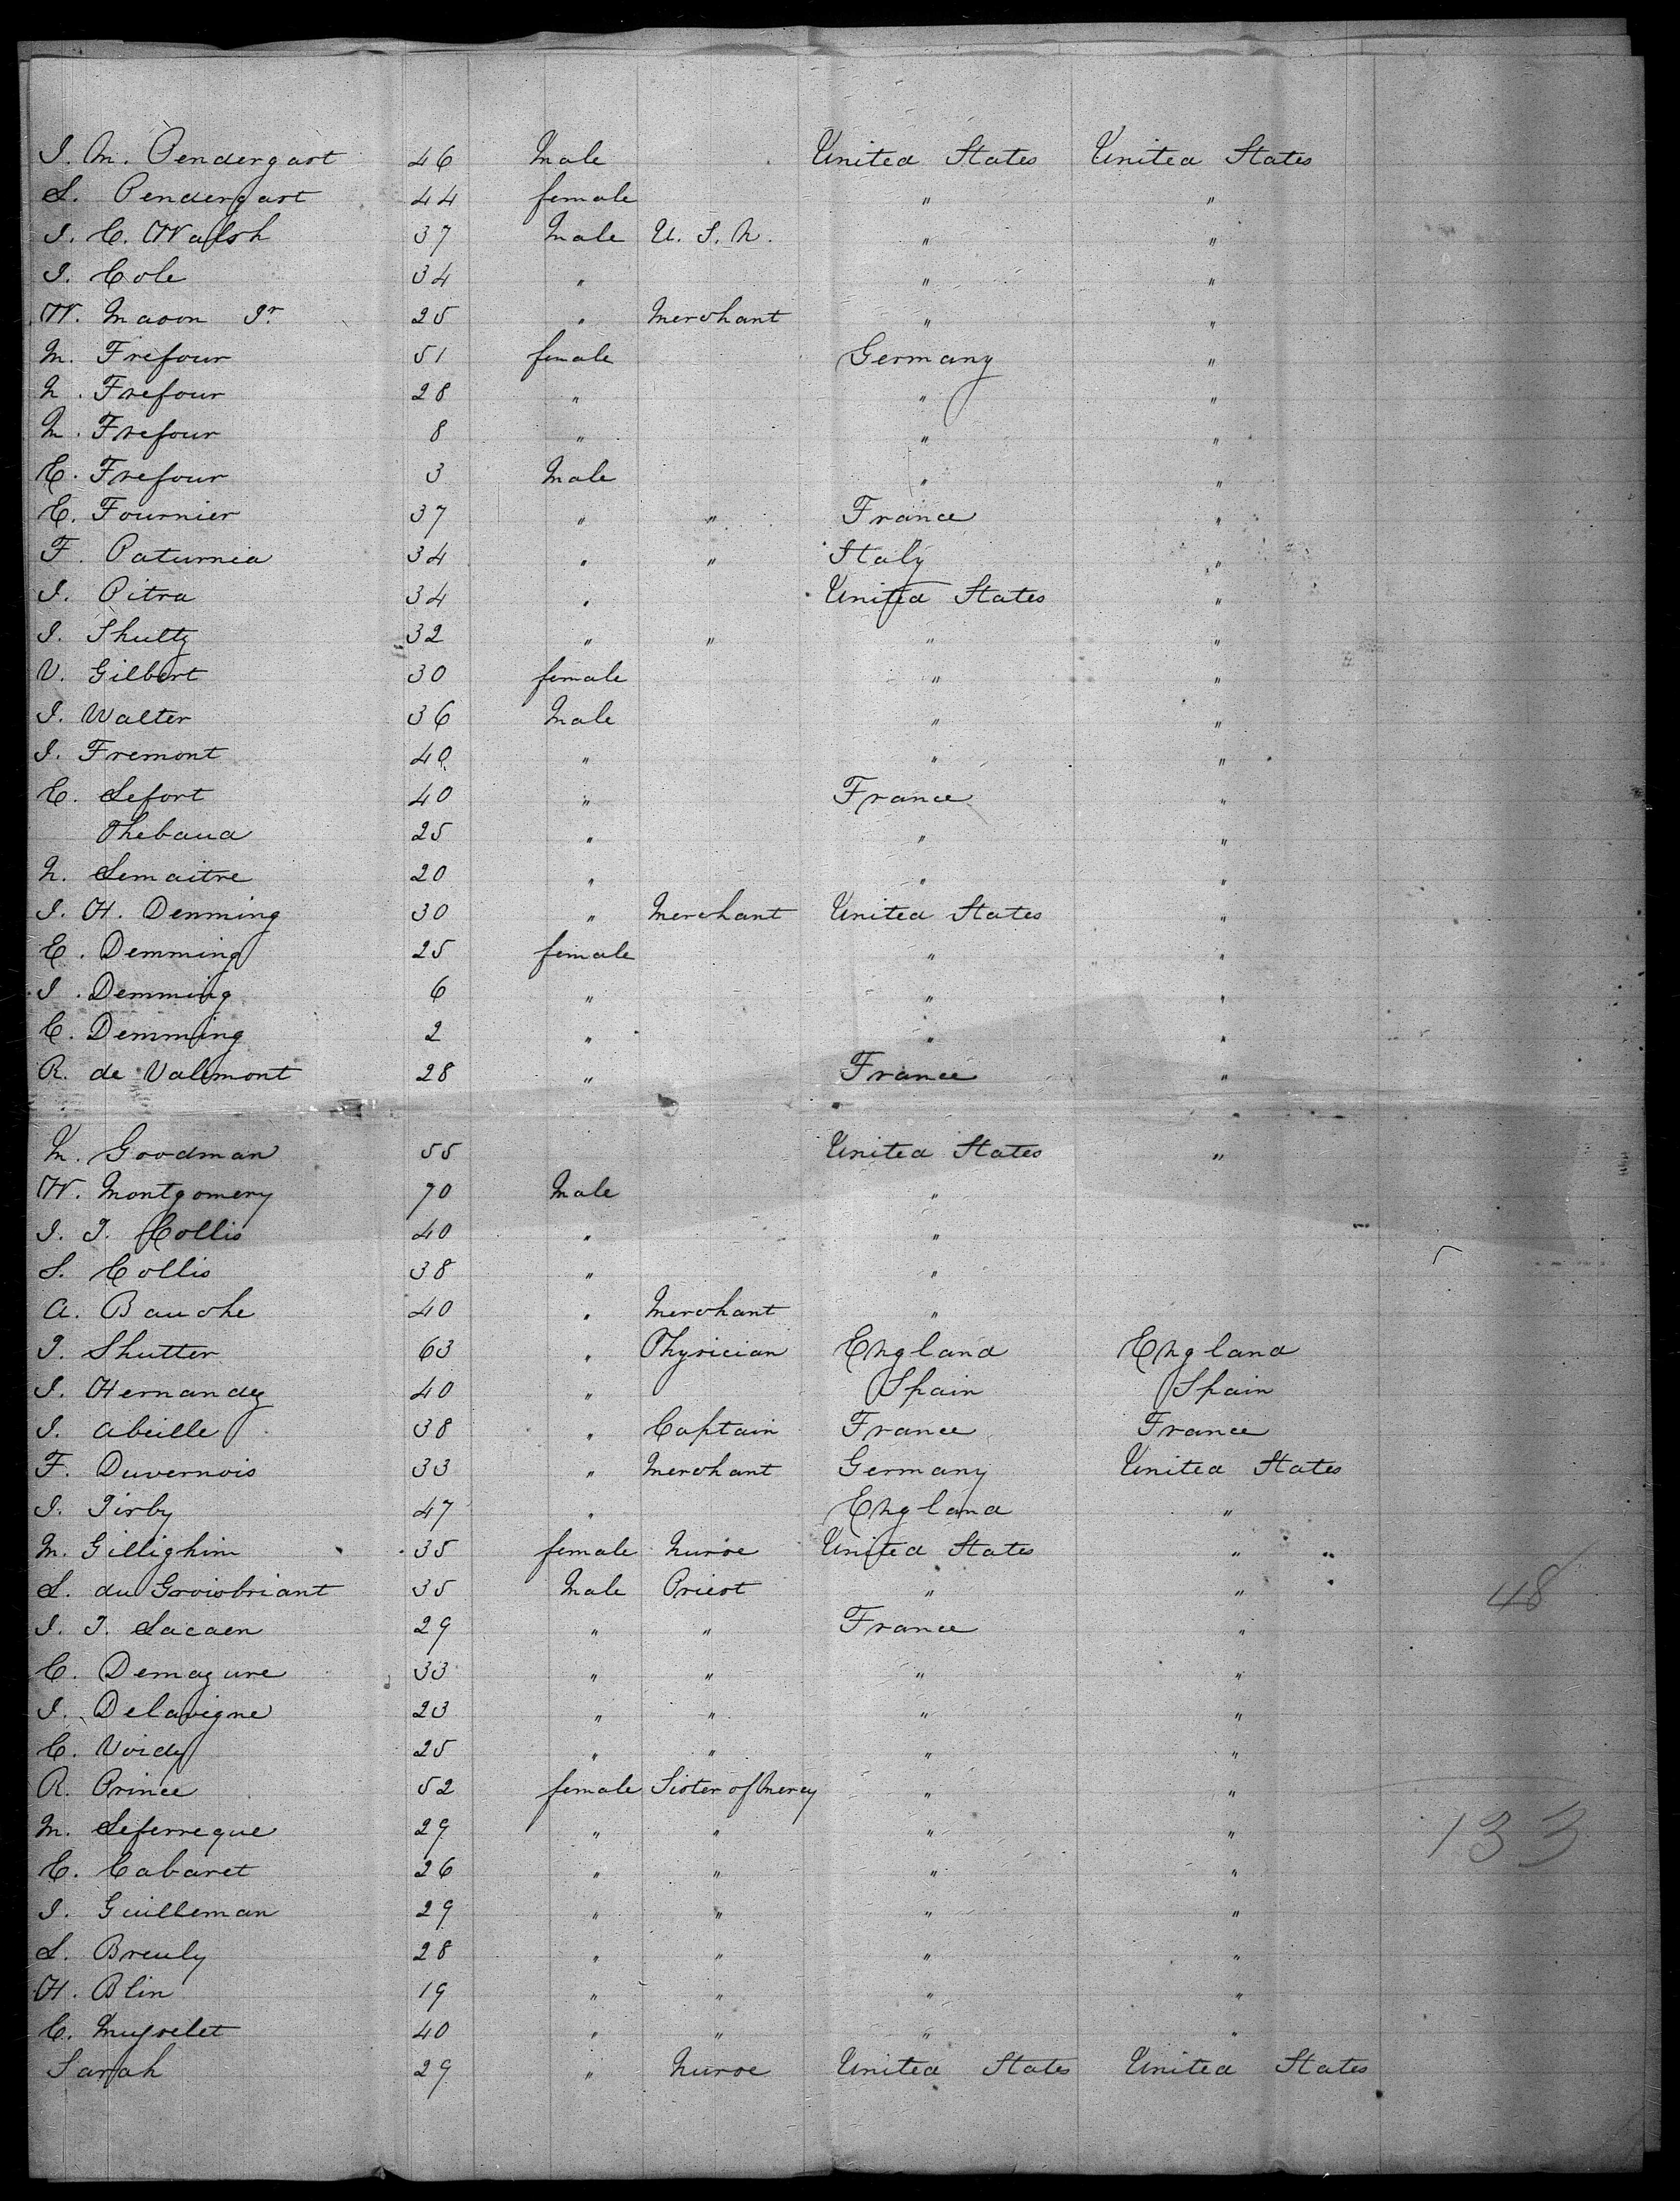 J. M. Pendergast 46 Male United States United States
L. Pendergast 44 female " "
J. C. Walsh 37 Male U. S. N. " "
J. Cole 34 " " "
W. Mason Jr. 25 " Merchant " "
M. Frefour 51 female Germany "
N. Frefour 28 " " "
M. Frefour 8 " " "
E. Frefour 3 Male " "
E. Fournier 37 " " France "
F. Paturnia 34 " " Italy "
J. Pitra 34 " United States "
J. Shultz 32 " " " "
V. Gilbert 30 female " "
J. Walter 36 Male " "
J. Fremont 40 " " "
C. Lefort 40 " France "
Thebaud 25 " " "
N. Lemaitre 20 " " "
J. H. Demming 30 " Merchant United States "
E. Demming 25 female " "
J. Demming 6 " " "
C. Demming 2 " " "
R. de Valimont 28 " France "
M. Goodman 55 United States "
W. Montgomery 70 Male "
J. T. Collis 40 " "
S. Collis 38 " "
A. Bauche 40 " Merchant "
T. Shutter 63 " Physician England England
J. Hernandez 40 " Spain Spain
J. Abeille 38 " Captain France France
F. Duvernois 33 " Merchant Germany United States
J. Tirby 47 " England "
M. Gillighim 35 female Nurse United States " "
L. du Groisbriant 35 Male Priest " " 48
J. T. Lacaen 29 " " France "
C. Demagure 33 " " " "
J. Delavigne 23 " " " "
C. Voidy 25 " " " "
R. Prince 52 female Sister of Mercy " "
M. Leferreque 29 " " " " 133
E. Cabaret 26 " " " "
J. Guilleman 29 " " " "
L. Breuly 28 " " " "
H. Blin 19 " " " "
C. 40 " " " "
Sarah 29 " Nurse United States United States